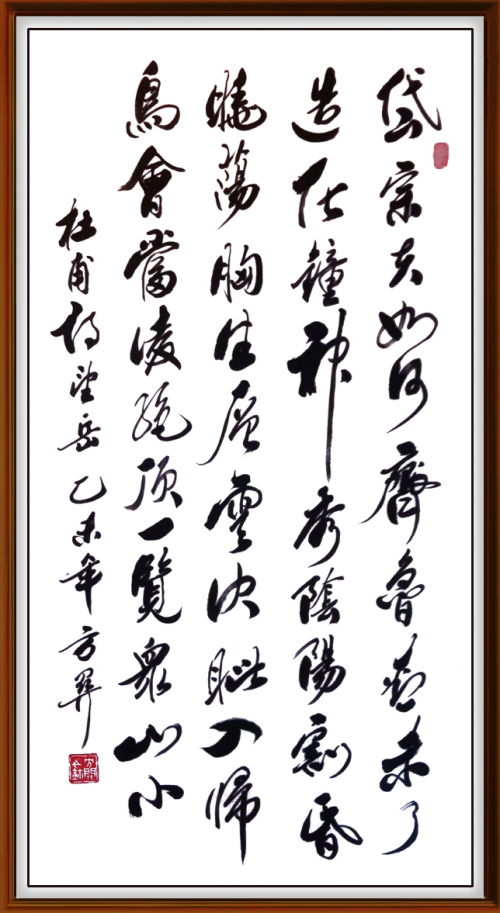 岱宗夫如何齊魯青未了
造化鐘神秀陰陽割昏
曉蕩胸生層雲決眥入歸
鳥會當凌絕頂一覽眾山小
杜甫詩望岳乙未年方